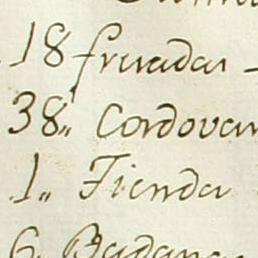 18 frisadas -
38„ Cordovan
1„ Tienda
6 Badanas